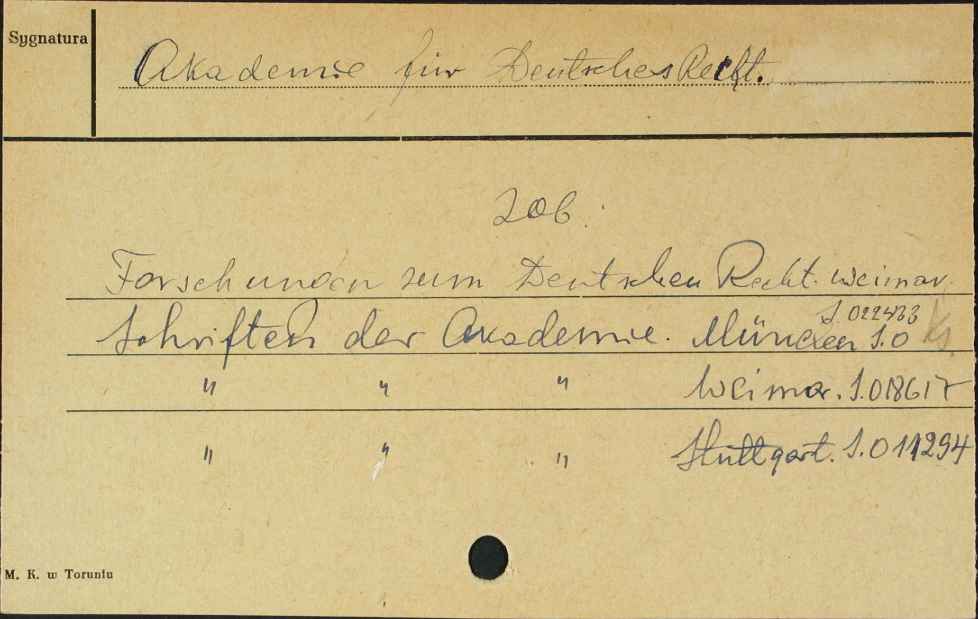 Sygnatura
Akademie für Deutsches Recht.
Zob.
Forschungen zum Deutschen Recht. Weimar.
S. 022433
Schriften der Akademie. München S.O
" " " Weimar. S.018617
" " " Stuttgart. S.011294
M. K. w Toruniu